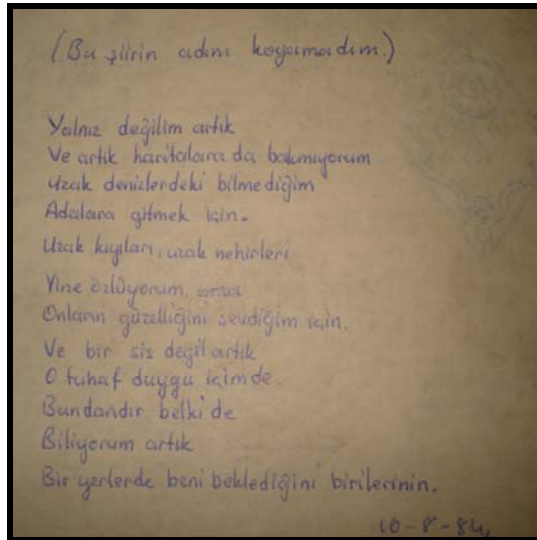 (Bu şiirin adını koyamadım.)
Yalnız değilim artık
Ve artık haritalara da bakmıyorum
Uzak denizlerdeki bilmediğim
Adalara gitmek için.
Uzak kıyıları, uzak nehirleri
Yine özlüyorum,
Onların güzelliğini sevdiğim için.
Ve bir sis değil artık
O tuhaf duygu içimde.
Bundandır belki de
Biliyorum artık
Bir yerlerde beni beklediğini birilerinin.
10-8-84,